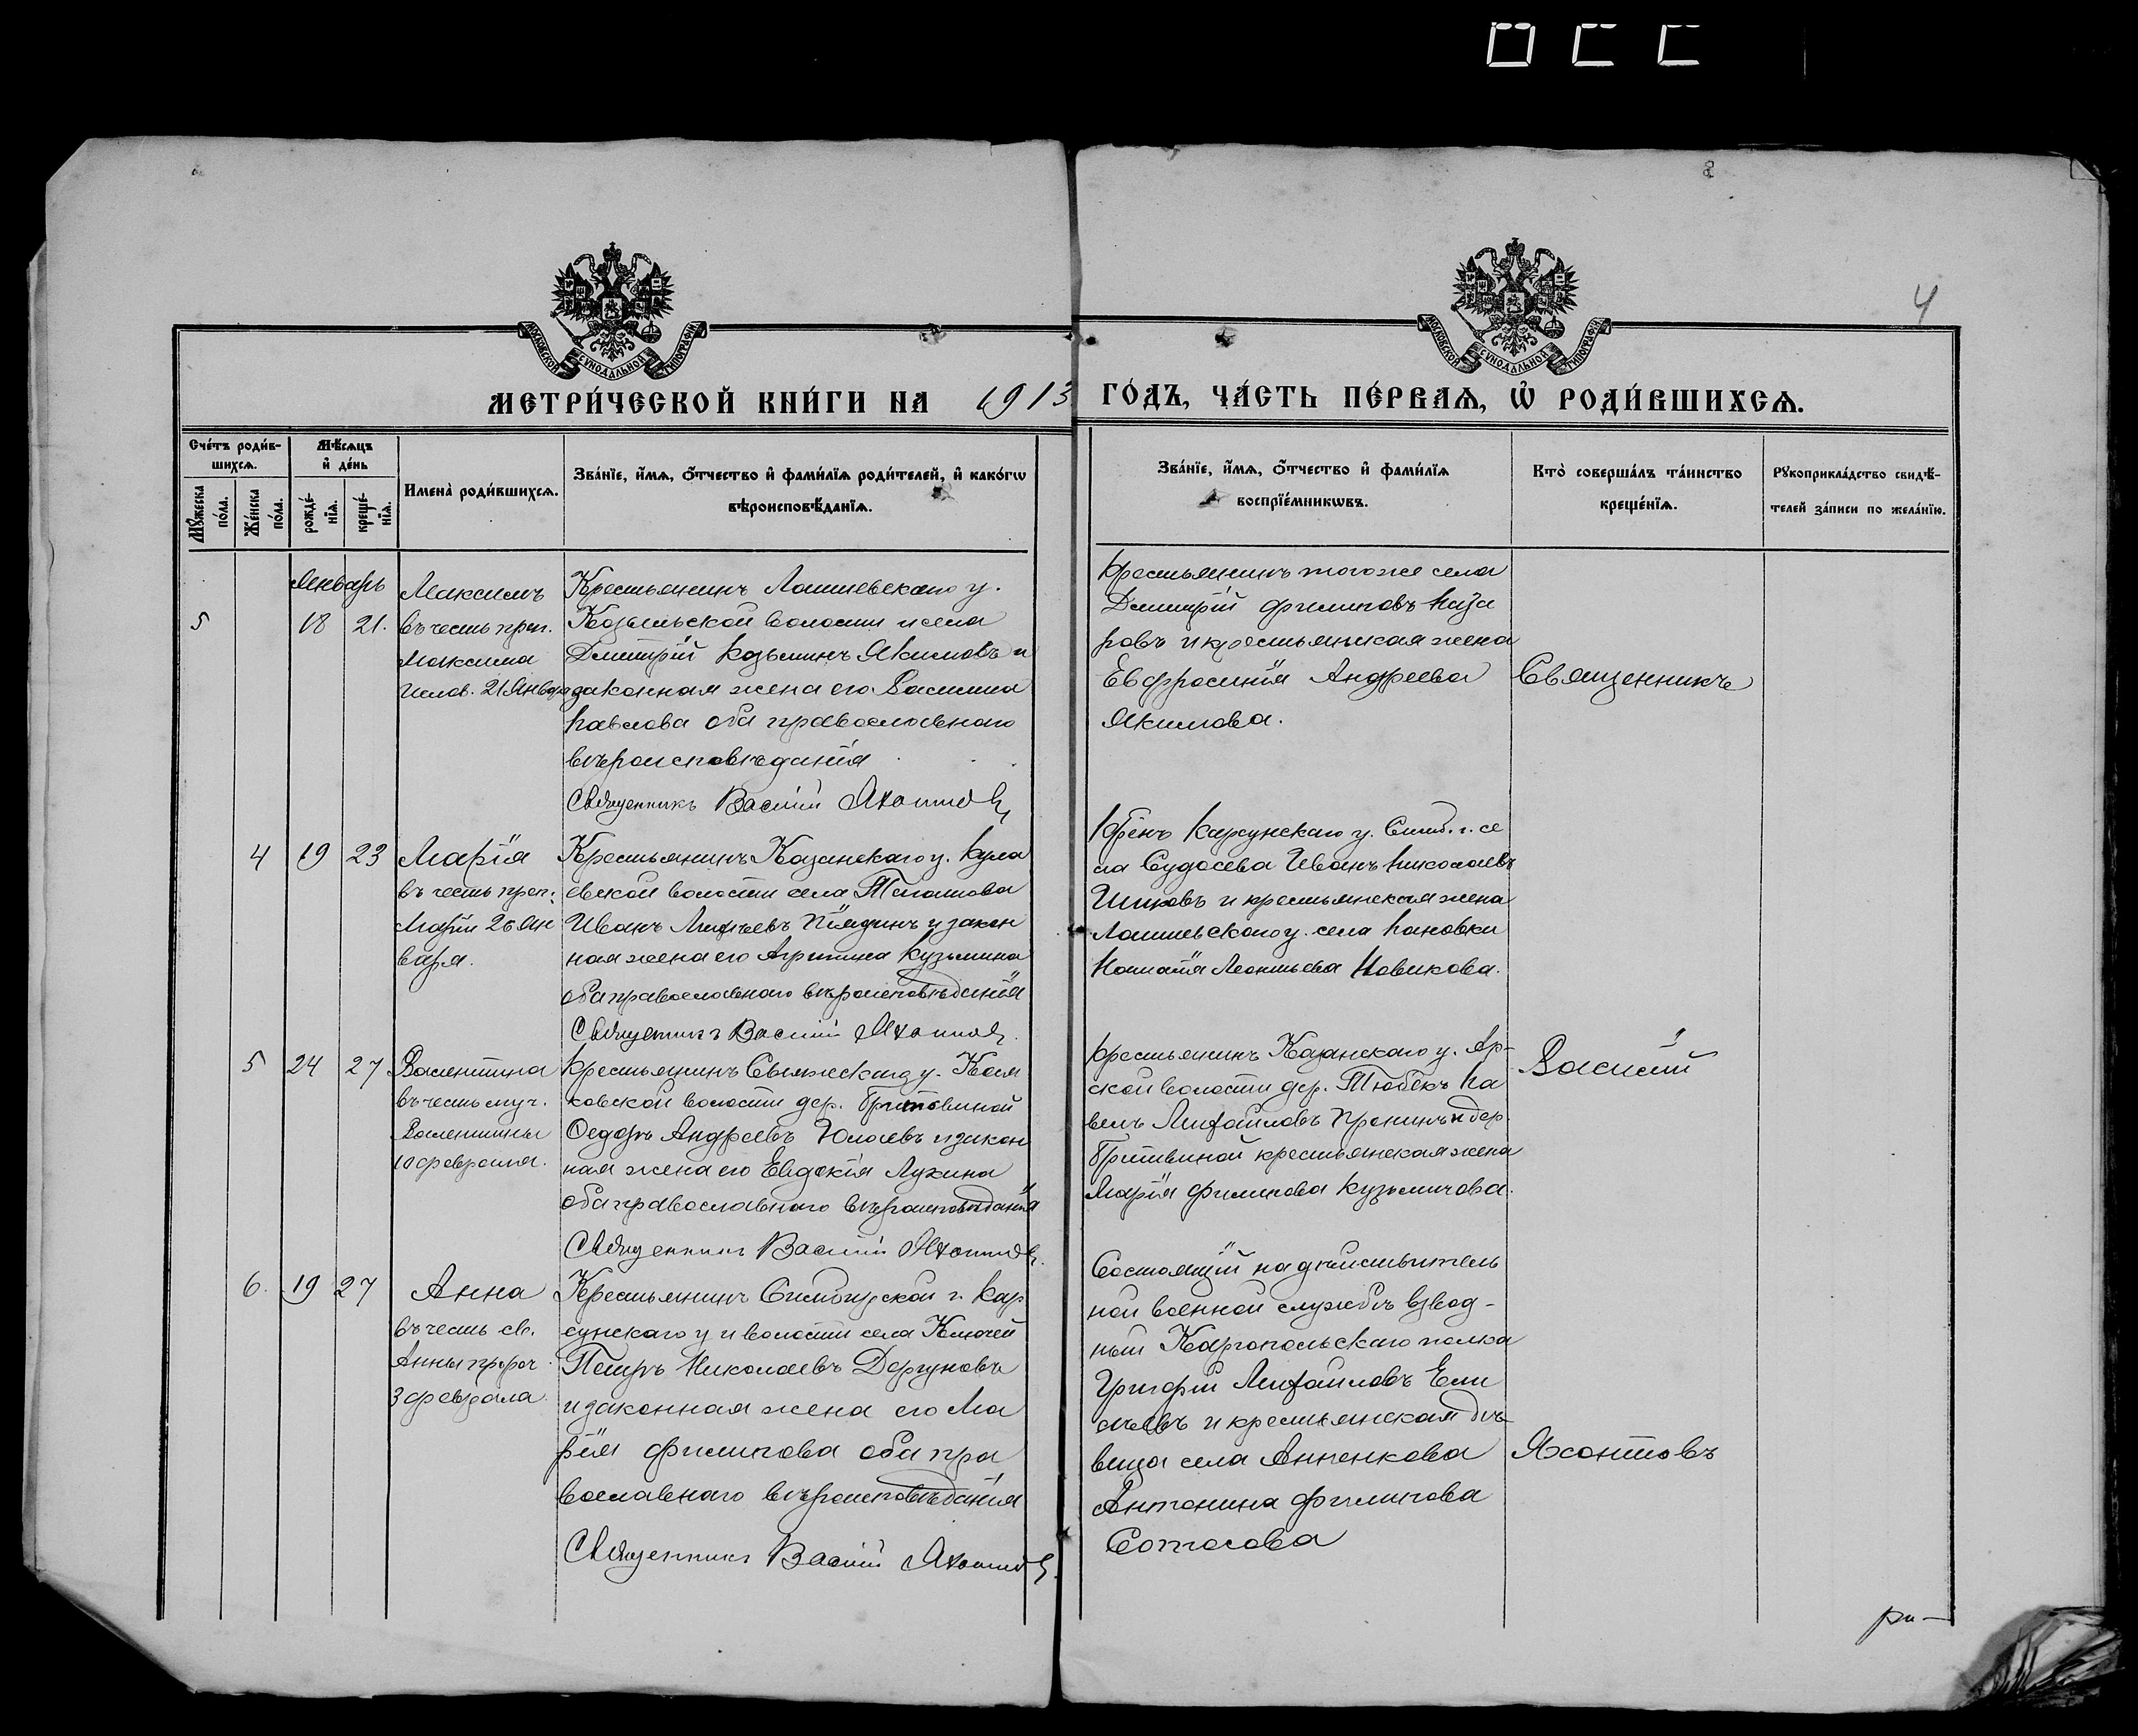 4
МЕТРИ́ЧЕСКОЙ КНИ́ГИ НА 1913 ГО́ДЪ, ЧА́СТЬ ПЕ́РВАѦ, Ѡ҆ РОДИ́ВШИХСѦ.
Сче́тъ роди́в-
шихсѧ.
Мꙋ́жеска по́ла.
Же́нска по́ла.
Мѣ́сѧцъ
и҆ де́нь
рожде́-
нїѧ.
креще́-
нїѧ.
Имена̀ роди́вшихсѧ.
Зва́нїе, и҆́мѧ, ѻ҆́тчество и҆ фами́лїѧ роди́телей, и҆ како́гѡ
вѣроисповѣ́данїѧ.
Зва́нїе, и҆́мѧ, ѻ҆́тчество и҆ фами́лїѧ
воспрїе́мникѡвъ.
Кто̀ соверша́лъ та́инство
креще́нїѧ.
Рꙋкоприкла́дство свидѣ́-
телей за́писи по жела́нїю.
Январь
5 18 21.
Максимъ
въ честь преп.
Максима
Испов. 21 Января
Крестьянинъ Лаишевскаго у.
Козыльской волости и села
Дмитрій Козьминъ Якимовъ и
законная жена его Василиса
Павлова оба православнаго
вѣроисповѣданія
Священникъ Василій Яхонтовъ
Крестьянинъ того же села
Дмитрій Филиповъ Наза
ровъ и крестьянская жена
Евфросинія Андреева
Якимова.
Священникъ
4 19 23
Марія
въ честь преп.
Маріи 26 Ян
варя.
Крестьянинъ Казанскаго у. Кула
евской волости села
Иванъ Матѳеевъ и закон
ная жена его Агрипина Кузьмина
оба православнаго вѣроисповѣданія
Священникъ Василій Яхонтовъ.
Кр-нъ Карсунскаго у. Симб. г. се
ла Судосева Иванъ Николаевъ
и крестьянская жена
Лаишевскаго у. села Пановки
Наталія Леонтьева Новикова.
5 24 27
Валентина
въ честь муч.
Валентины
10 февраля.
Крестьянинъ Свіяжскаго у.
ковской волости дер.
Ѳедоръ Андреевъ Юлаевъ и закон
ная жена его Евдокія Лукина
оба православнаго вѣроисповѣданія
Священникъ Василій Яхонтовъ.
Крестьянинъ Казанскаго у. Ар-
ской волости дер. Тюбякъ Па
велъ Михайловъ Пронинъ и дер.
крестьянская жена
Марія Филипова Кузьмичова.
Василій
6. 19 27
Анна
въ честь св.
Анны пророч.
3 февраля.
Крестьянинъ Симбирской г. Кар
сунскаго у и волости села Ключей
Петръ Николаевъ Дергуновъ
и законная жена его Ма
рія Филипова оба пра
вославнаго вѣроисповѣданія
Священникъ Василій Яхонтовъ.
Состоящій на дѣйствитель
ной военной службѣ взвод-
ный Каргопольскаго полка
Григорій Михайловъ Ели
сѣевъ и крестьянская дѣ
вица села Анненкова
Антонина Филипова
Яхонтовъ